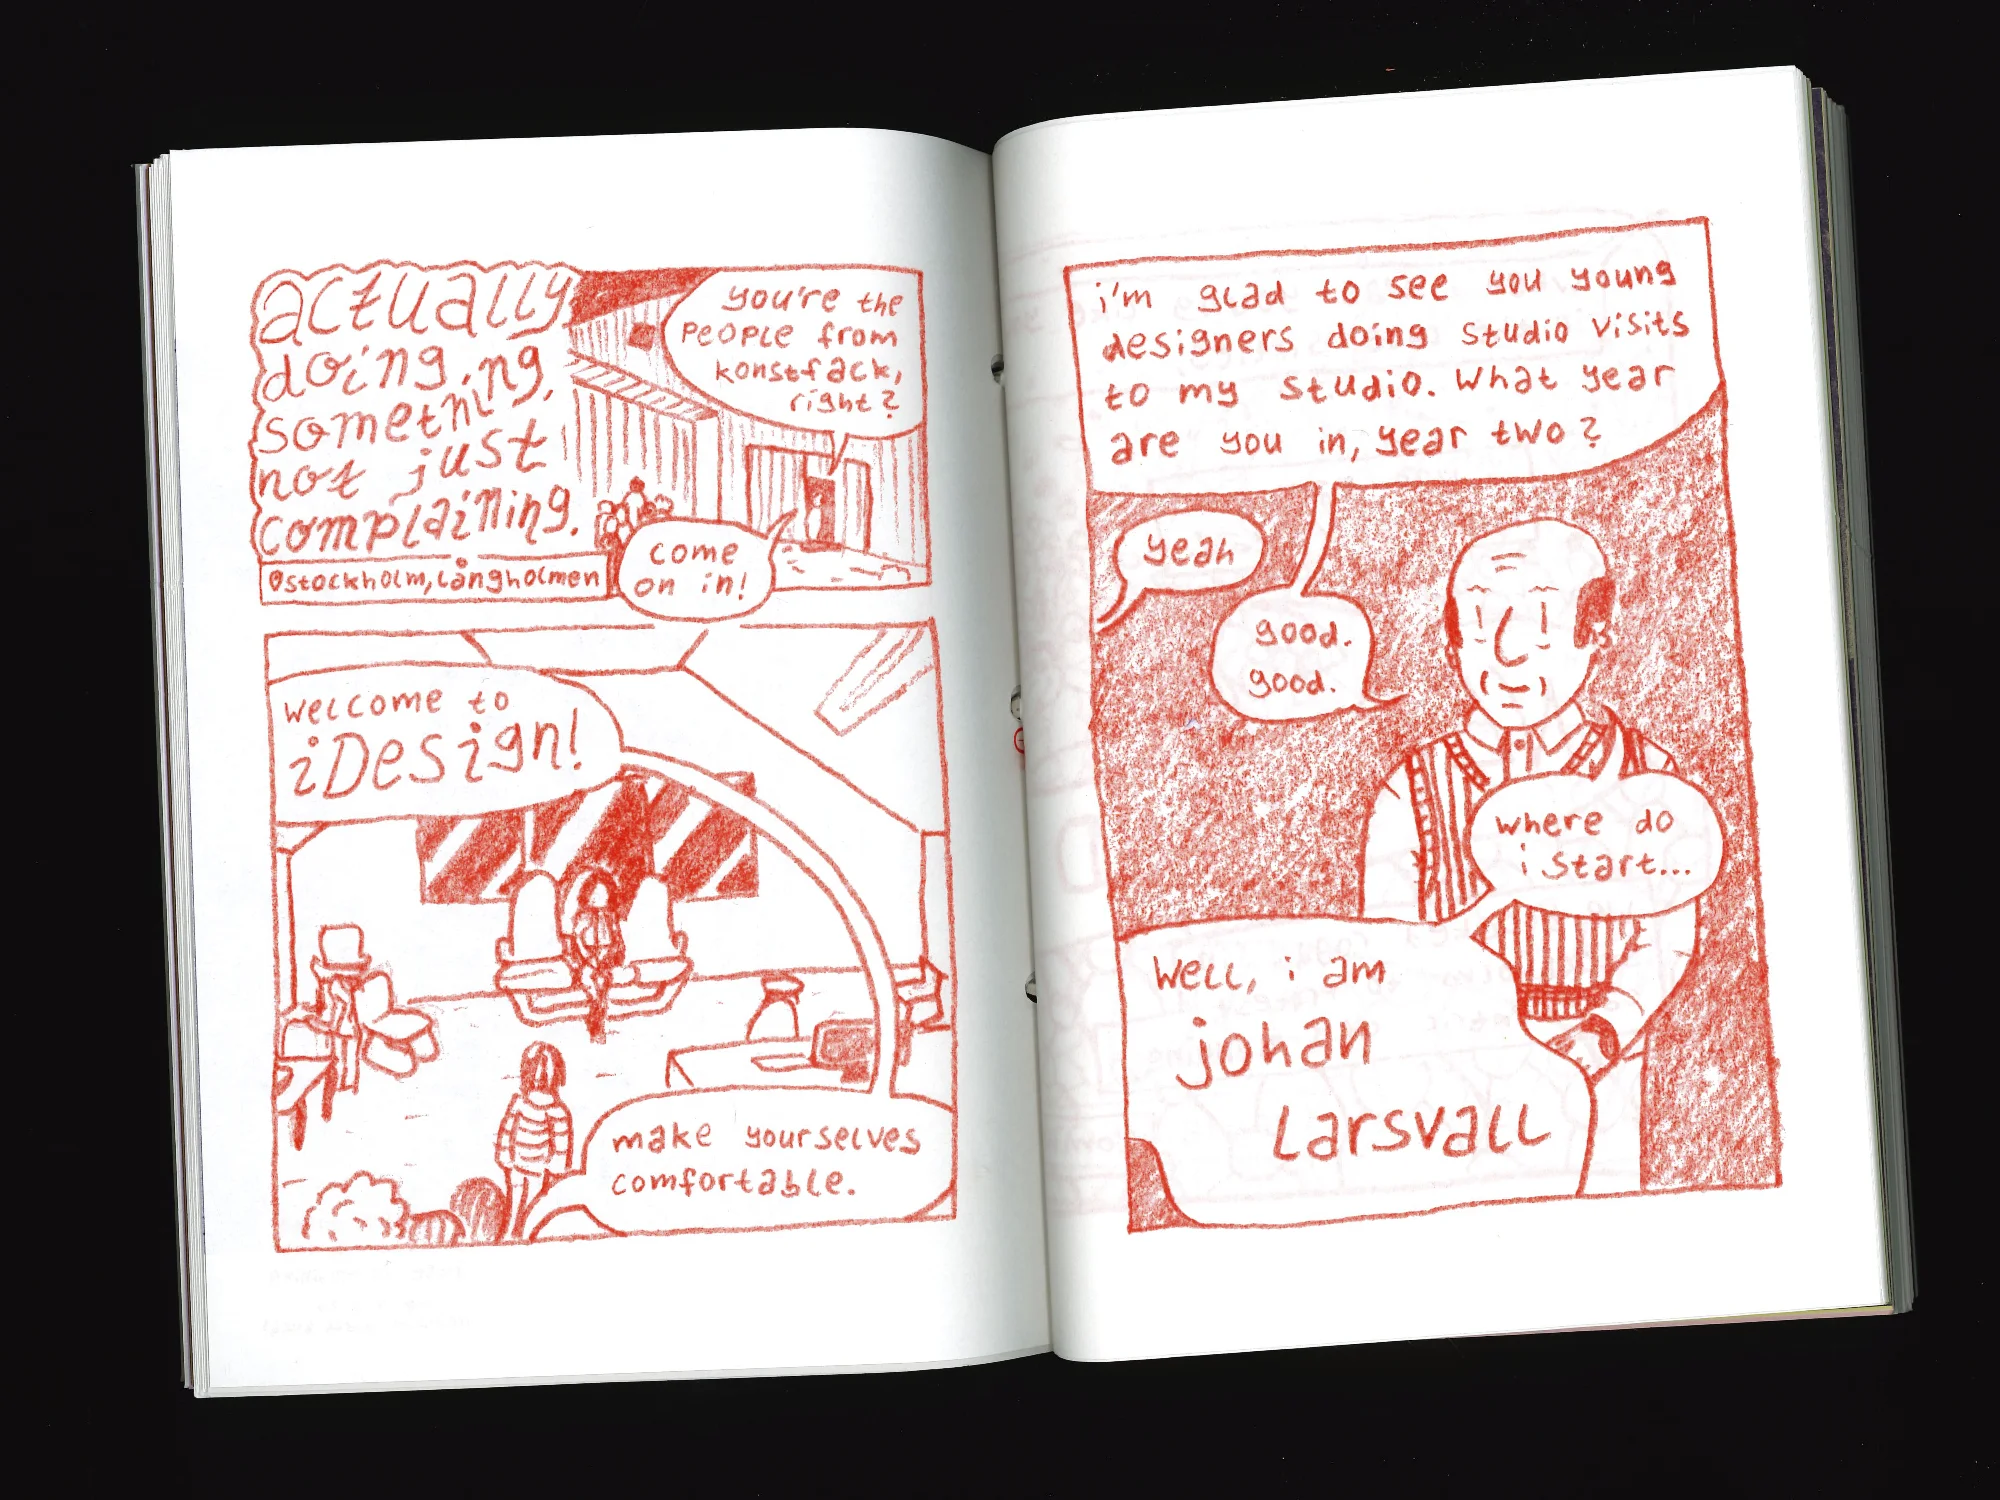 actually
doing
something,
not just
complaining.
stockholm, långholmen
you're the
people from
konstfack,
right?
come
on in!
welcome to
iDesign!
make yourselves
comfortable.
i'm glad to see you young
designers doing studio visits
to my studio. What year
are you in, year two?
yeah
good.
good.
where do
i start...
Well, i am
johan
Larsvall